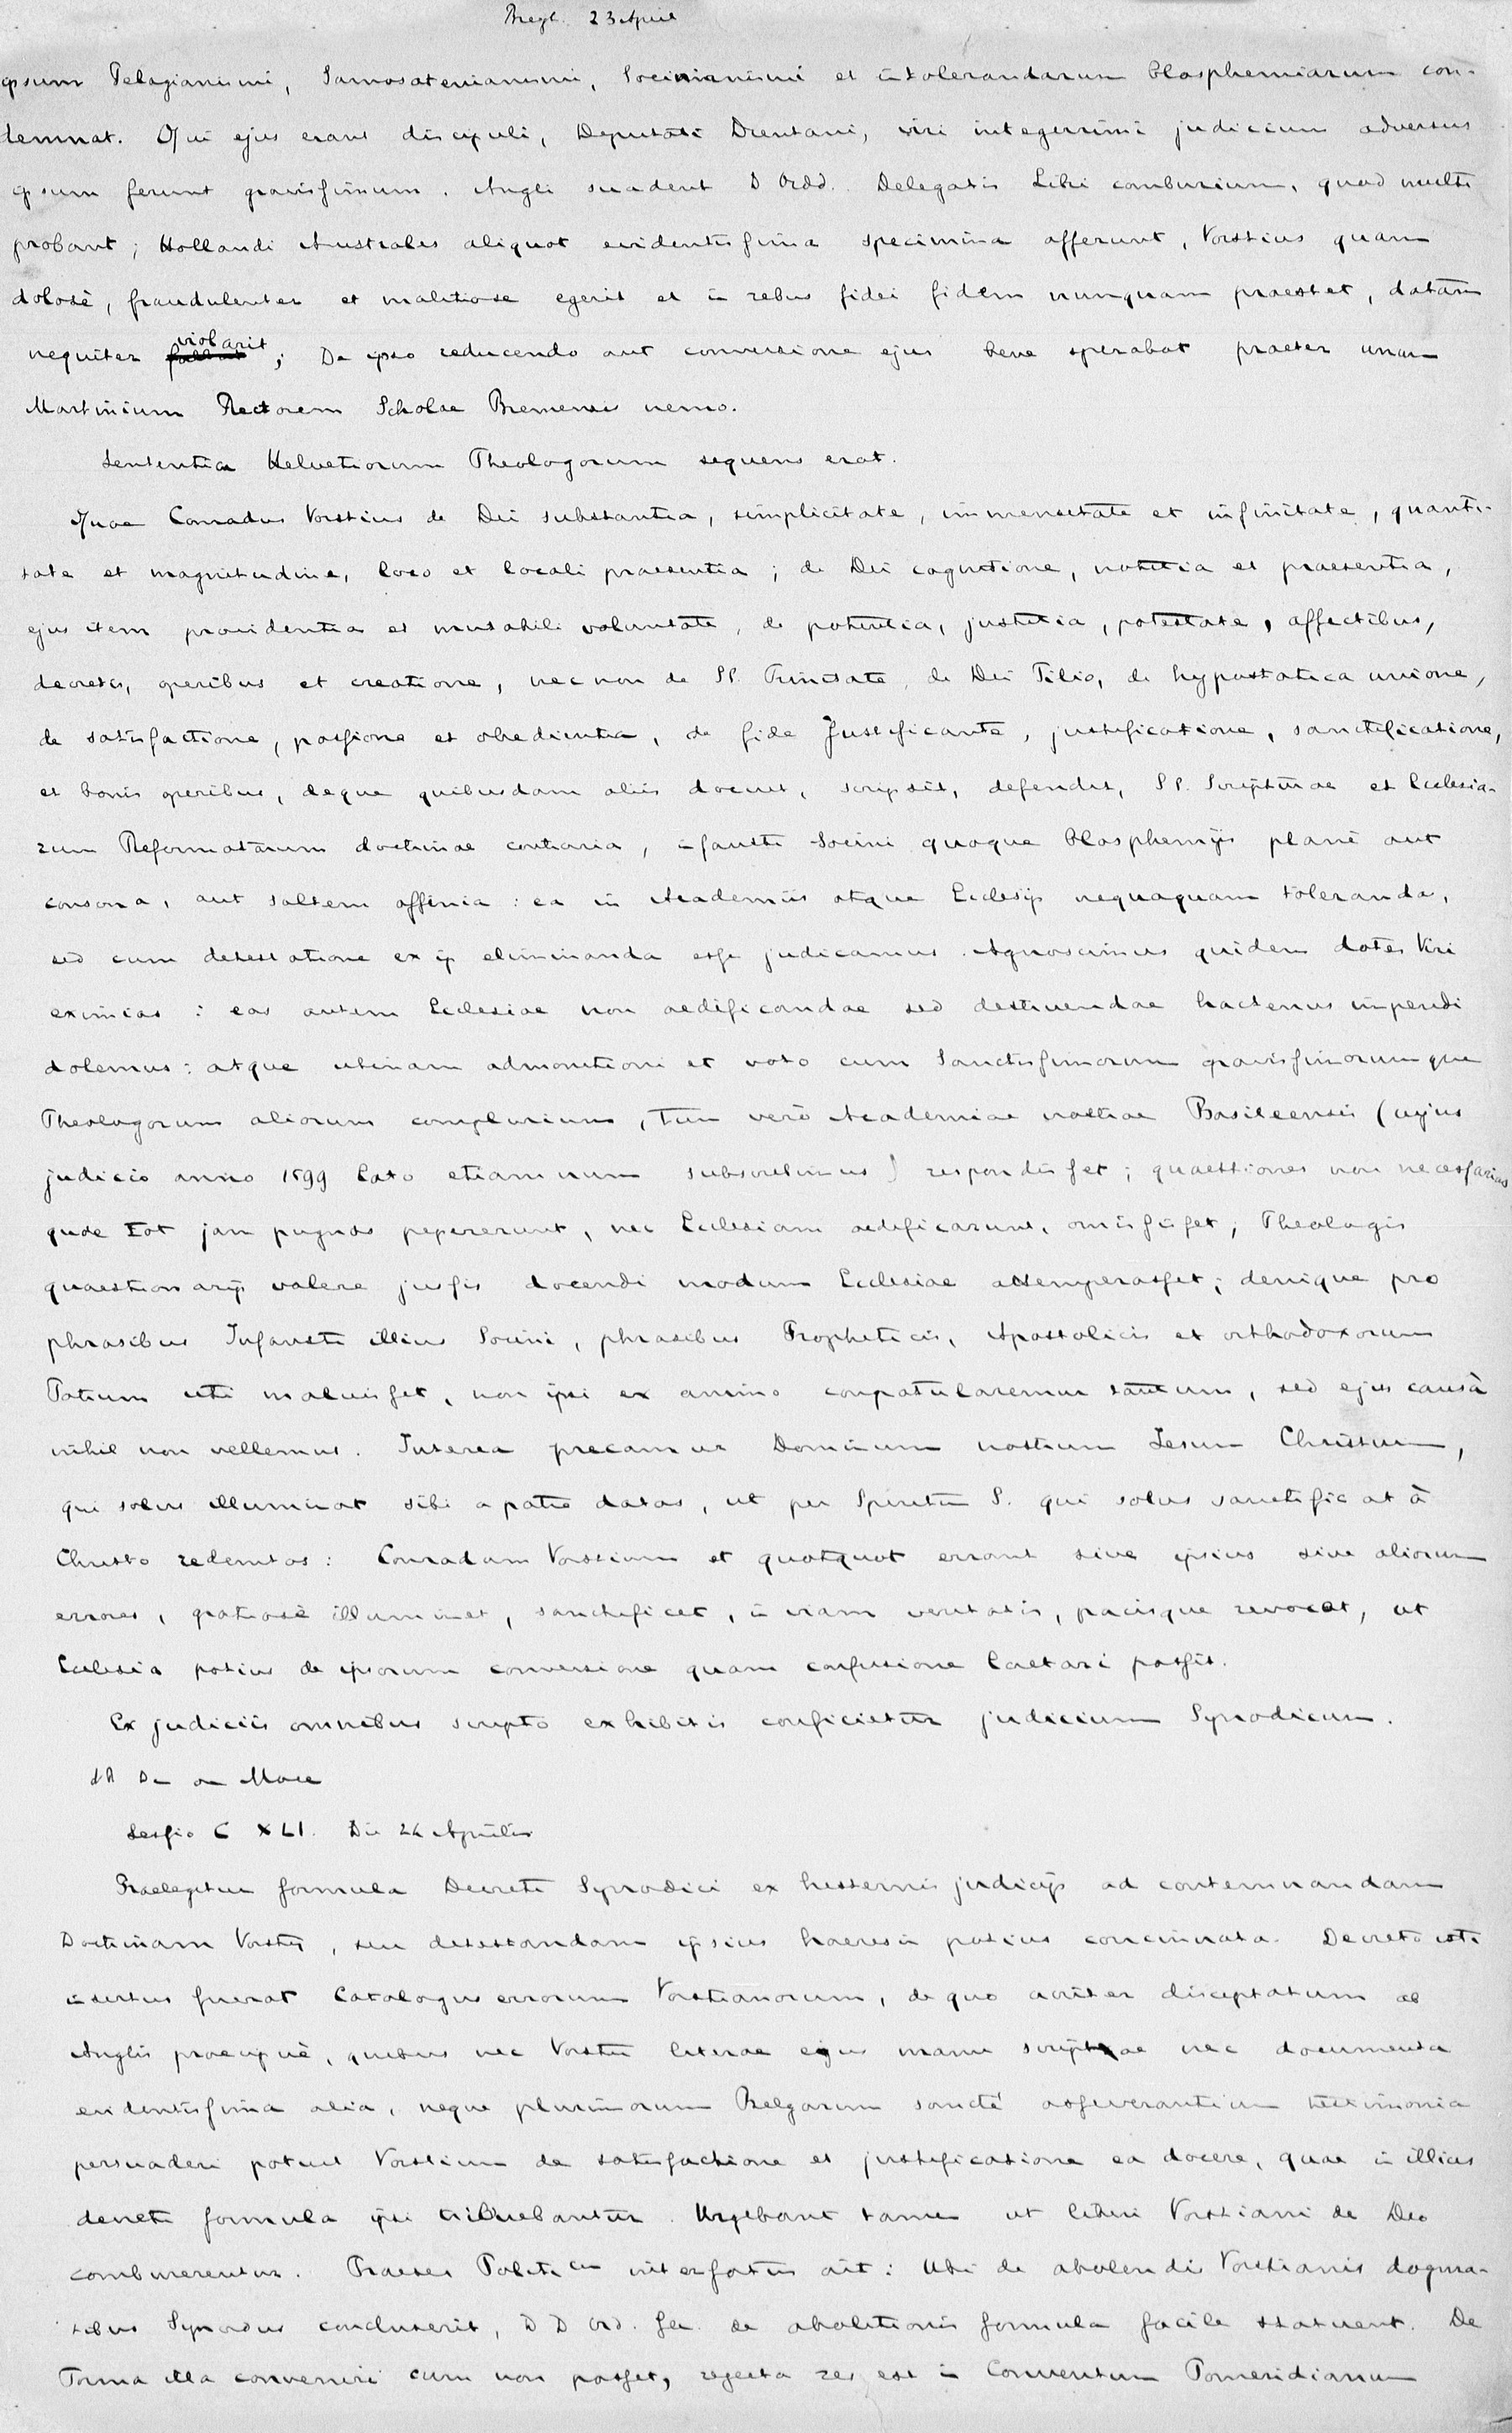 Bregl. 23 April
ipsum Pelagianismi, Samosatenianismi, Socinianismi et intolerandarum blasphemiarum con-
demnat. Qui ejus erant discipuli, Deputati Drentani, viri integerrimi judicium adversus
ipsum ferunt gravissimum. Angli suadent D Ordd. Delegatis Libri comburium, quod multi
probant; Hollandi Australes aliquot evidentissima specimina afferunt, Vorstius quam
dolosè, fraudulenter et malitiose egerit et in rebus fidei fidem nunquam praestet, datam
nequiter violarit; De ipso reducendo aut conversione ejus bene sperabat praeter unum
Martinium Rectorem Scholae Bremensis nemo.
Sententia Helvetiorum Theologorum sequens erat.
Quae Conradus Vorstius de Dei substantia, simplicitate, immensitate et infinitate, quanti-
tate et magnitudine, loco et locali praesentia; de Dei cognitione, notitia et praesentia,
ejus item providentia et mutabili voluntate, de potentia, justitia, potestate, affectibus,
decretis, operibus et creatione, nec non de SS. Trinitate, de Dei Filio, de hypostatica unione,
de satisfactione, passione et obedientia, de fide Justificante, justificatione, sanctificatione,
et bonis operibus, deque quibusdam aliis docuit, scripsit, defendit, SS. Scripturae et Ecclesia-
rum Reformatarum doctrinae contraria, infausti Socini quoque blasphemijs planè aut
consona, aut saltem affinia: ea in Academiis atque Ecclesijs nequaquam toleranda,
sed cum detestatione ex ijs eliminanda esse judicamus. Agnoscimus quidem dotes Viri
eximias: eas autem Ecclesiae non aedificandae sed destruendae hactenus impendi
dolemus: atque utinam admonitioni et voto cum Sanctissimorum gravissimorumque
Theologorum aliorum complurium, Tum verò Academiae nostrae Basileensis (cujus
judicio anno 1599 lato etiamnum subscribimus) respondisset; quaestiones non necessarias
quae tot jam pugnas pepererunt, nec Ecclesiam aedificarunt, omisisset, Theologis
quaestionarijs valere jussis docendi modum Ecclesiae attemperasset; denique pro
phrasibus Infausti illius Socini, phrasibus Propheticis, Apostolicis et orthodoxorum
Patrum uti maluisset, non ipsi ex animo congratularemur tantum, sed ejus causâ
nihil non vellemus. Interea precamur Dominum nostrum Jesum Christum,
qui solus illuminat sibi a patre datos, ut per Spiritum S. qui solus sanctificat à
Christo redemtos: Conradum Vorstium et quotquot errant sive ipsius sive aliorum
errores, gratiosè illuminet, sanctificet, in viam veritatis, pacisque revocet, ut
Ecclesia potius de ipsorum conversione quam confusione laetari possit.
Ex judiciis omnibus scripto exhibitis conficietur judicium Synodicum.
Sessio C XLI. Die 24 Aprilis
Praelegitur formula Decreti Synodici ex hesternis judicijs ad contemnandam
Doctrinam Vorstij, seu detestandam ipsius haeresin potius concinnata. Decreto isti
insertus fuerat Catalogus errorum Vorstianorum, de quo acriter disceptatum ab
Anglis praecipuè, quibus nec Vorstii literae ejus manu scriptae nec documenta
evidentissima alia, neque plurimorum Belgarum sanctè asseverantium testimonia
persuaderi potuit Vorstium de satisfactione et justificatione ea docere, quae in illius
decreti formula ipsi tribuebantur. Urgebant tamen ut libri Vorstiani de Deo
comburerentur. Praeses Politicus interfatus ait: Ubi de abolendis Vorstianis dogma-
tibus Synodus concluserit, D D Ord. Gen. de abolitionis formula facile statuent. De
Forma illa conveniri cum non posset, rejecta res est in Conventum Pomeridianum